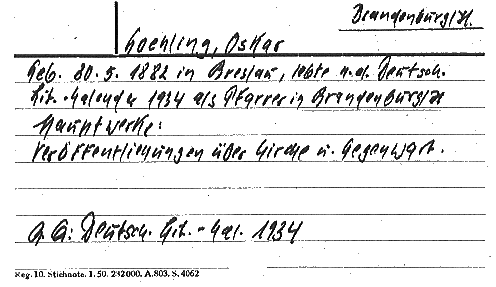 Brandenburg/H.
Goehling, Oskar
Geb. 30.5.1882 in Breslau, lebte n.d. Deutsch.
Lit.-Kalender 1934 als Pfarrer in Brandenburg/H
Hauptwerke:
Veröffentlichungen über Kirche u. Gegenwart.
Q.: Deutsch. Lit.-Kal. 1934
Reg. 10. Stichnote. 1. 50. 232000. A. 803. S. 4062